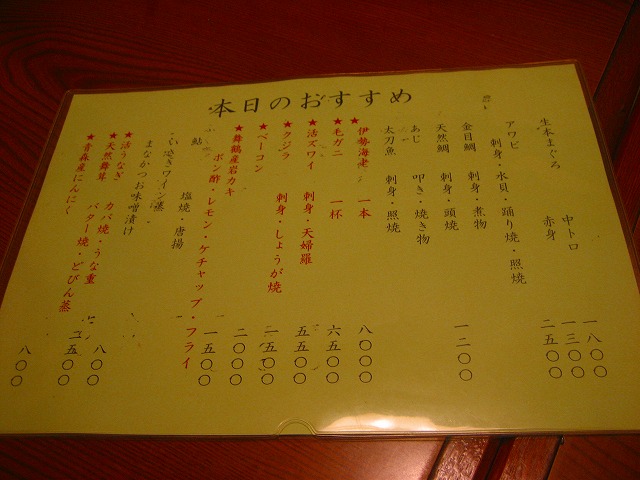 本日のおすすめ
生本まぐろ 中トロ 一八〇〇
赤身 一三〇〇
アワビ 刺身・水貝・踊り焼・照焼 二五〇〇
金目鯛 刺身・煮物
天然鯛 刺身・頭焼 一二〇〇
あじ 叩き・焼き物
太刀魚 刺身・照焼
★伊勢海老 一本 八〇〇〇
★毛ガニ 一杯 六五〇〇
★活ズワイ 刺身・天婦羅 五五〇〇
★クジラ 刺身・しょうが焼 二五〇〇
★ベーコン 二〇〇〇
★舞鶴産岩カキ 一五〇〇
ポン酢・レモン・ケチャップ・フライ
鮎 塩焼・唐揚
ワイン蒸
まなかつお味噌漬け
★活うなぎ カバ焼・うな重
★天然舞茸 バター焼・どびん蒸
★青森産にんにく 八〇〇